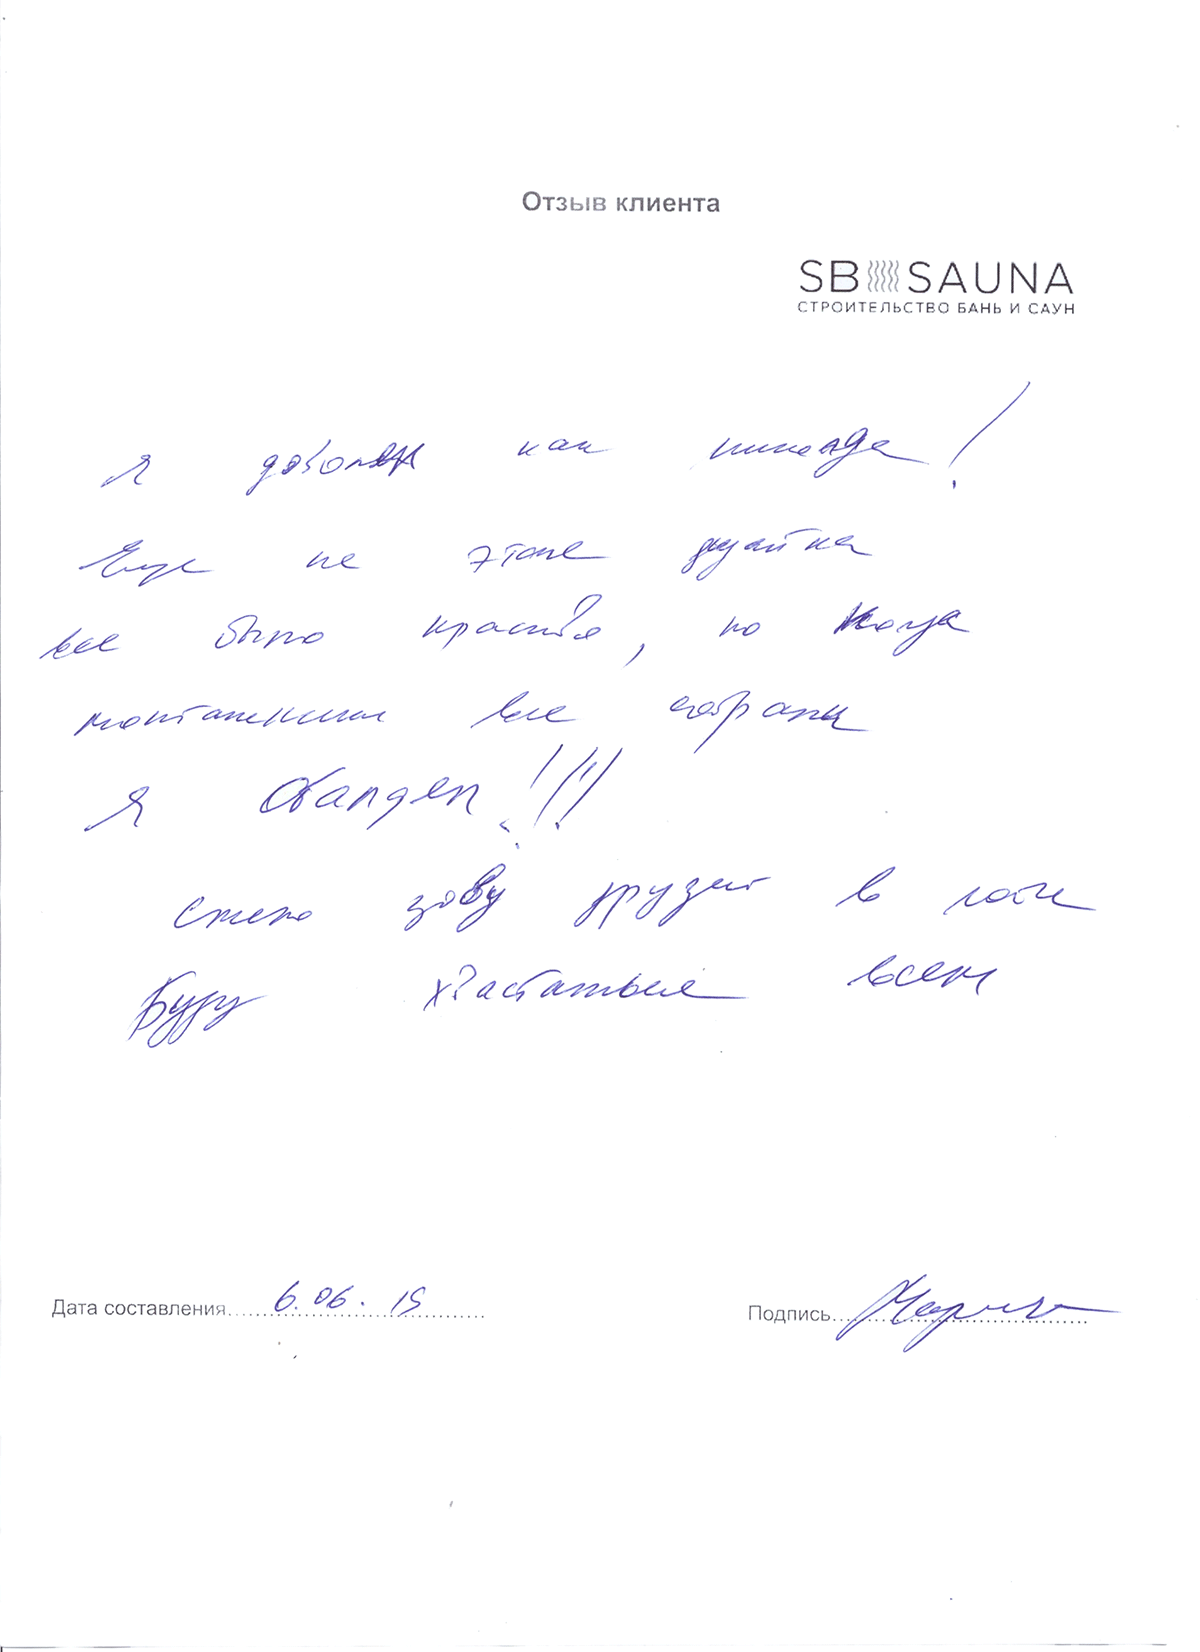 Отзыв клиента
SB SAUNA
СТРОИТЕЛЬСТВО БАНЬ И САУН
Я доволен как никогда!
Еще на этапе
все было красиво, но когда
монтажники все собрали
я обалдел!!!
Смело зову друзей в гости
Буду хвастаться всем
Дата составления 6.06.19
Подпись